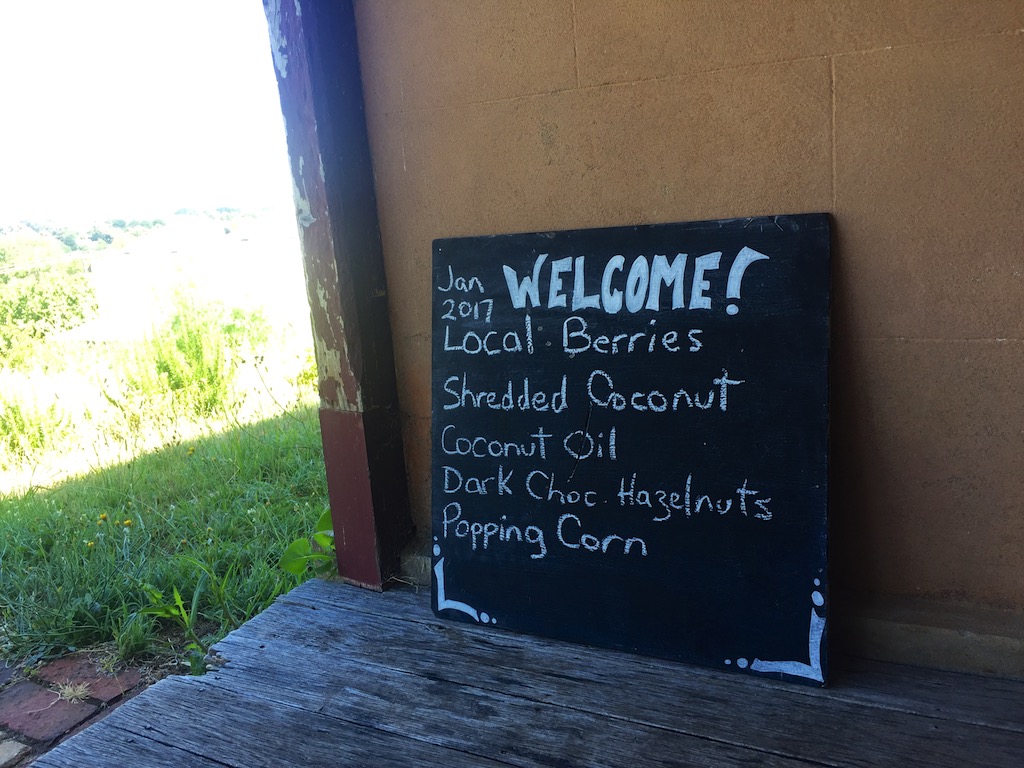 Jan WELCOME!
2017
Local Berries
Shredded Coconut
Coconut Oil
Dark Choc. Hazelnuts
Popping Corn